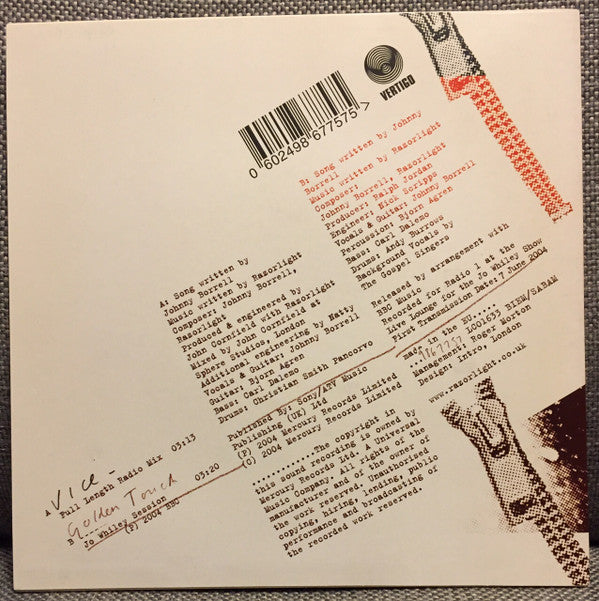 VERTIGO
0 602498 677575 >
B: Song written by Johnny
Borrell
Music written by Razorlight
Composer:
Johnny Borrell, Razorlight
Producer: Ralph Jordan
Engineer: Nick Scripps
Vocals & Guitar: Johnny Borrell
Percussion: Bjorn Agren
Bass: Carl Dalemo
Drums: Andy Burrows
Background Vocals by
The Gospel Singers
Released by arrangement with
BBC Music
Recorded for Radio 1 at the
Live Lounge for the Jo Whiley Show
First Transmission Date: 7 June 2004
made in the EU.....
.....9867757 LC01633 BIEM/SABAM
Management: Roger Morton
Design: Intro, London
www.razorlight.co.uk
A: Song written by
Johnny Borrell
Music written by Razorlight
Composer: Johnny Borrell,
Razorlight
Produced & engineered by
John Cornfield with Razorlight
Mixed by John Cornfield at
Sphere Studios, London
Additional engineering by Matty
Vocals & Guitar: Johnny Borrell
Guitar: Bjorn Agren
Bass: Carl Dalemo
Drums: Christian Smith Pancorvo
Published By: Sony/ATV Music
Publishing (UK) Ltd
(P) 2004 Mercury Records Limited
(C) 2004 Mercury Records Limited
..........The copyright in
this sound recording is owned by
Mercury Records Ltd. A Universal
Music Company. All rights of the
manufacturer and of the owner of
the work reserved. Unauthorised
copying, hiring, lending, public
performance and broadcasting of
the recorded work reserved.
A Vice -
Full Length Radio Mix 03:13
Golden Touch
B ------
Jo Whiley Session 03:20
(P) 2004 BBC